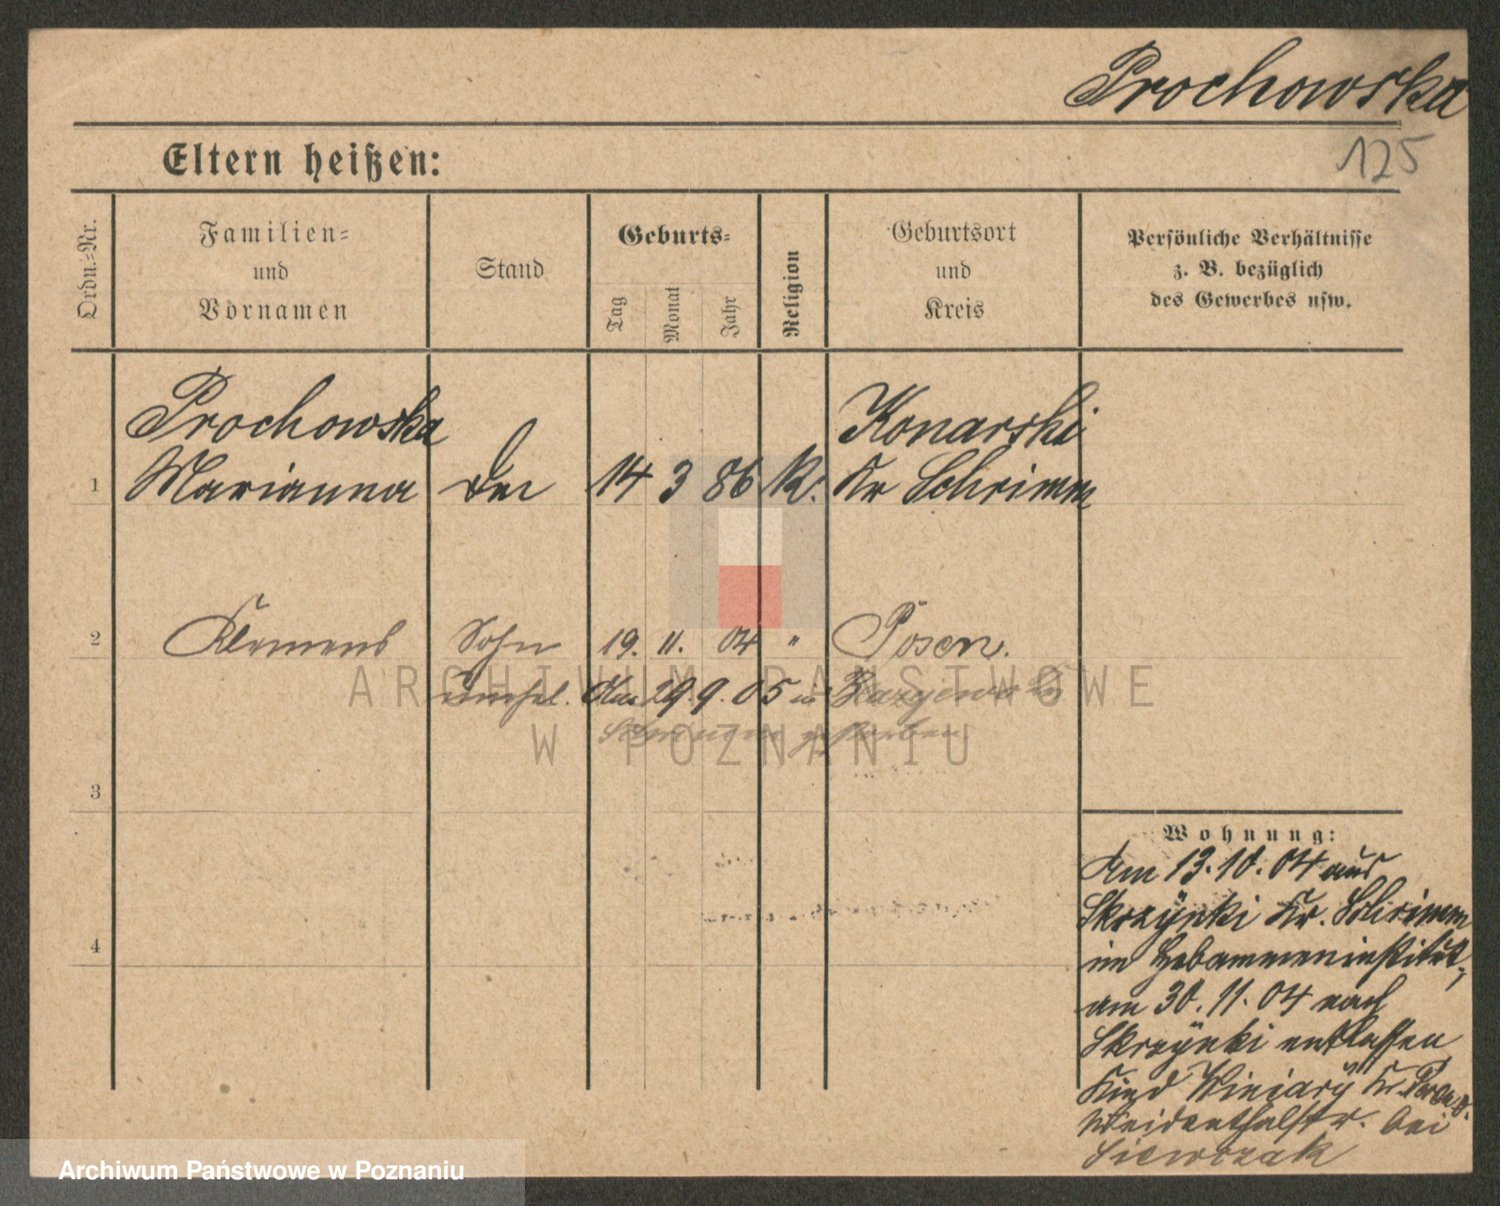 Prochowska
125
Eltern heißen:
Ordn.-Nr.
Familien-
und
Vornamen
Stand
Geburts-
Tag
Monat
Jahr
Religion
Geburtsort
und
Kreis
Persönliche Verhältnisse
z. B. bezüglich
des Gewerbes usw.
Prochowska Konarski
1 Marianna 14 3 86 K. Kr Schrimm
2 Klemens Sohn 19. 11. 04 " Posen.
unehel. Am 29. 9. 05 in
Schrimm gestorben
3
4
Wohnung:
Am 13.10.04 aus
Skrzynki Kr. Schrimm
im Hebammeninstitut,
am 30.11.04 nach
Skrzynki entlassen
Kind Winiary Kr. Posen O.
bei
Siewczak
ARCHIWUM PAŃSTWOWE
W POZNANIU
Archiwum Państwowe w Poznaniu